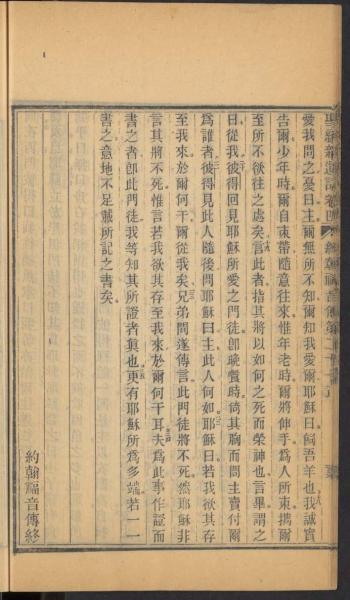 愛我問之憂曰主爾無所不知爾知我愛爾耶穌曰飼吾羊也我誠實
告爾少年時爾自束帶隨意往來惟年老時爾將伸手爲人所束攜爾
至所不欲往之處矣言此者指其將以如何之死而榮神也言畢謂之
曰從我彼得回見耶穌所愛之門徒卽晚餐時倚其胸而問主賣付爾
爲誰者彼得見此人隨後問耶穌曰主此人何如耶穌曰若我欲其存
至我來於爾何干爾從我矣兄弟間遂傳言此門徒將不死然耶穌非
言其將不死惟言若我欲其存至我來於爾何干耳夫爲此事作證而
書之者卽此門徒我等知其所證者眞也更有耶穌所爲多端若一一
書之意地不足載所記之書矣
約翰福音傳終